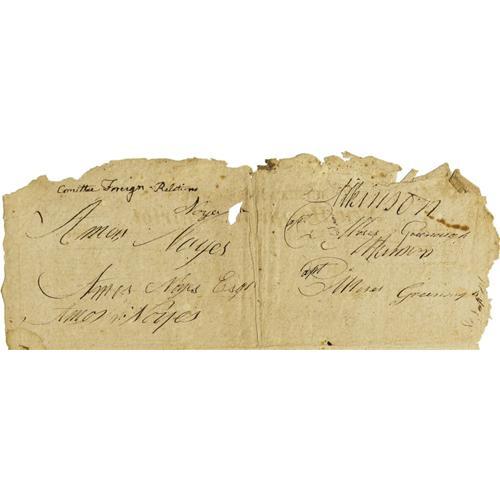 Comittee Foreign Relations
Noyes
Amos Noyes
Amos Noyes Esqr
Amos Noyes
Atkinson
Capt Moses Greenwood
Atkinson
Capt Moses Greenwood